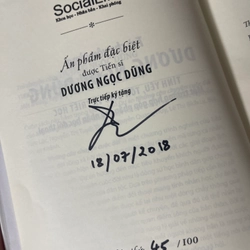 Khoa học • Nhân bản • Khai phóng
Ấn phẩm đặc biệt
được Tiến sĩ
DƯƠNG NGỌC DŨNG
Trực tiếp ký tặng
18/07/2018
45 /100